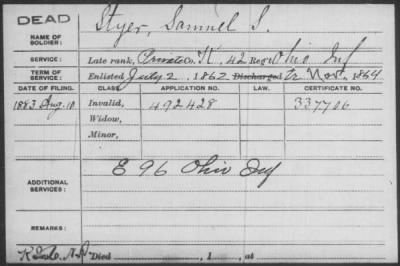 DEAD
NAME OF SOLDIER: Styer, Samuel S.
SERVICE: Late rank, Private Co. K, 42 Reg't Ohio Inf
TERM OF SERVICE: Enlisted July 2, 1862 Discharged tr. Nov. 1864
DATE OF FILING. CLASS. APPLICATION NO. LAW. CERTIFICATE NO.
1883 Aug. 10 Invalid, 492428 337706
Widow,
Minor,
ADDITIONAL SERVICES: E 96 Ohio Inf
REMARKS:
Died , 1 , at